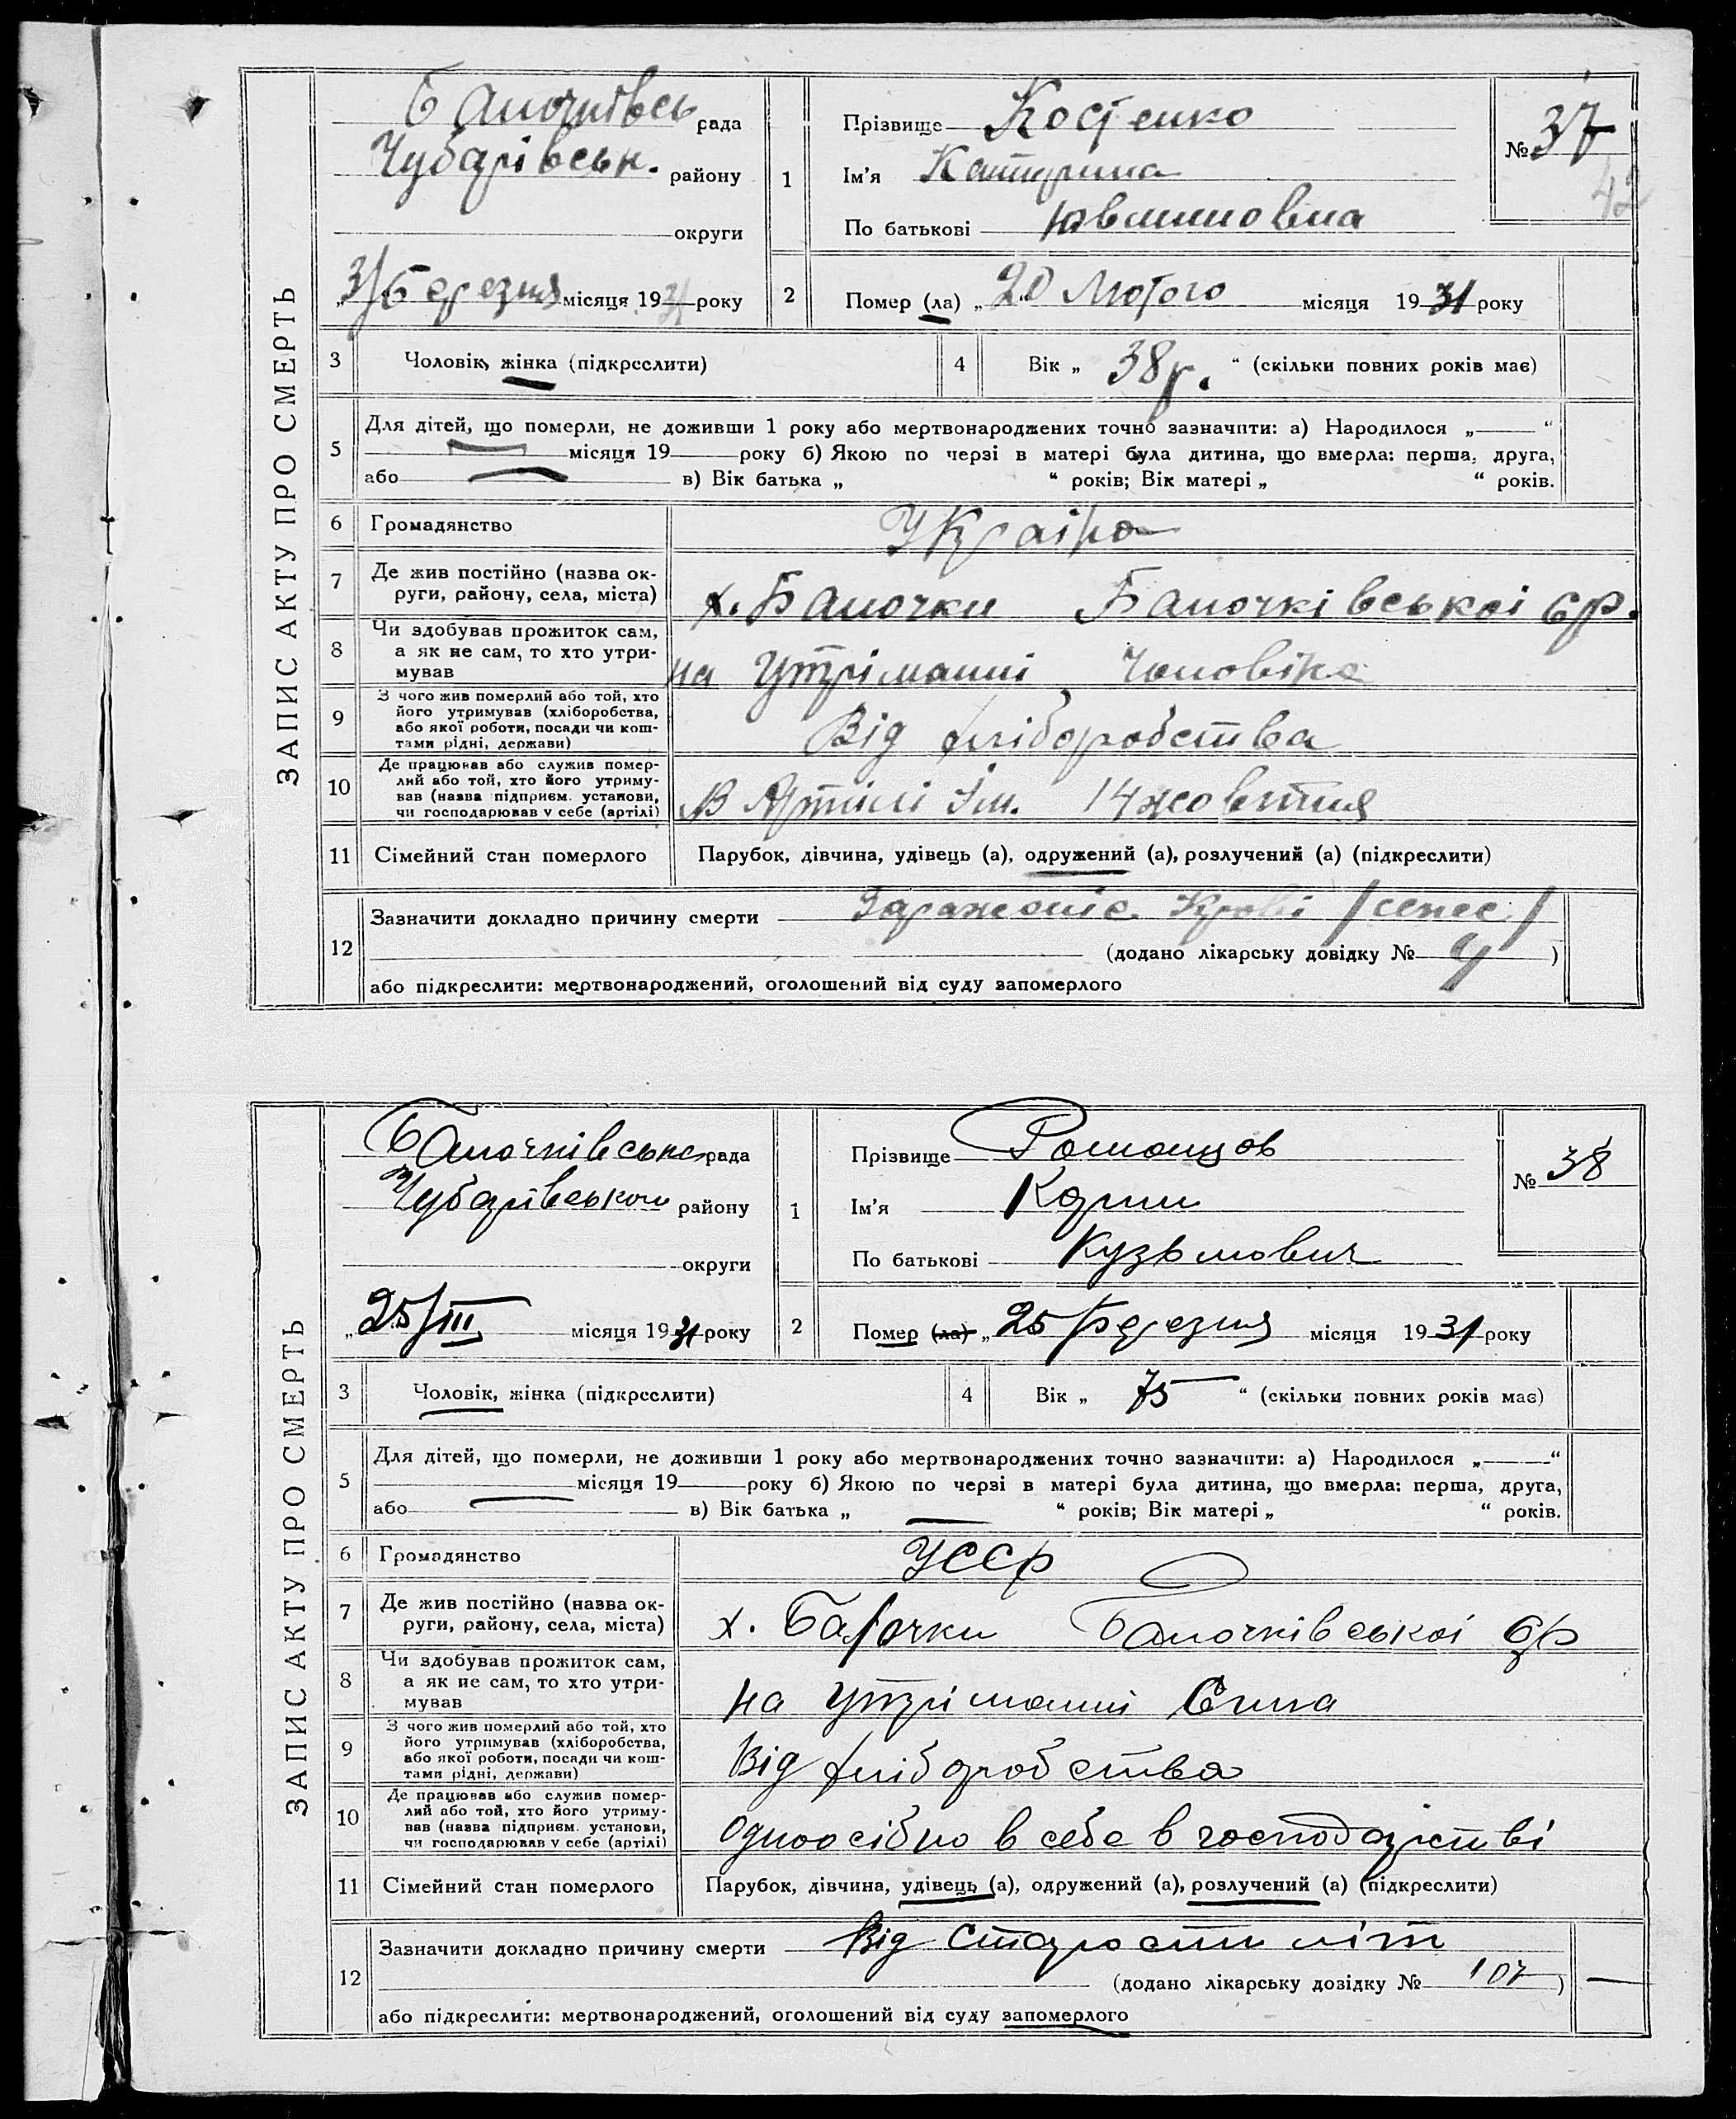 ЗАПИС АКТУ ПРО СМЕРТЬ
Балочківсь рада
Чубарівськ. району
округи
„3/Березня місяця 1931 року
1
Прізвище Костенко
Ім'я Катирина
По батькові
№ 37
42
2
Помер (ла) „20 Лютого місяця 1931 року
3
Чоловік, жінка (підкреслити)
4
Вік „ 38 р. “ (скільки повних років має)
5
Для дітей, що померли, не доживши 1 року або мертвонароджених точно зазначити: а) Народилося „ “
місяця 19 року б) Якою по черзі в матері була дитина, що вмерла: перша, друга,
або в) Вік батька „ “ років; Вік матері „ “ років.
6
Громадянство Україна
7
Де жив постійно (назва ок-
руги, району, села, міста) х. Балочки Балочківськоі Ср.
8
Чи здобував прожиток сам,
а як не сам, то хто утри-
мував на Утріманні Чоловіка
9
З чого жив померлий або той, хто
його утримував (хліборобства,
або якої роботи, посади чи кош-
тами рідні, держави) Від хліборобства
10
Де працював або служив помер-
лий або той, хто його утриму-
вав (назва підприєм. установи,
чи господарював у себе (артілі) В Артілі Ім. 14 жовтня
11
Сімейний стан померлого Парубок, дівчина, удівець (а), одружений (а), розлучений (а) (підкреслити)
12
Зазначити докладно причину смерти Зараженіє Крові /сепсс/
(додано лікарську довідку № 4 )
або підкреслити: мертвонароджений, оголошений від суду запомерлого
ЗАПИС АКТУ ПРО СМЕРТЬ
Балочківська рада
Чубарівського району
округи
„25/III місяця 1931 року
1
Прізвище Романцов
Ім'я Карпи
По батькові Кузьмович
№ 38
2
Помер (ла) „25 Березня місяця 1931 року
3
Чоловік, жінка (підкреслити)
4
Вік „ 75 “ (скільки повних років має)
5
Для дітей, що померли, не доживши 1 року або мертвонароджених точно зазначити: а) Народилося „ “
місяця 19 року б) Якою по черзі в матері була дитина, що вмерла: перша, друга,
або в) Вік батька „ “ років; Вік матері „ “ років.
6
Громадянство УССР
7
Де жив постійно (назва ок-
руги, району, села, міста) х. Балочки Балочківськоі Ср
8
Чи здобував прожиток сам,
а як не сам, то хто утри-
мував на утріманні Сина
9
З чого жив померлий або той, хто
його утримував (хліборобства,
або якої роботи, посади чи кош-
тами рідні, держави) Від хліборобства
10
Де працював або служив помер-
лий або той, хто його утриму-
вав (назва підприєм. установи,
чи господарював у себе (артілі) одноосібно в себе в господарстві
11
Сімейний стан померлого Парубок, дівчина, удівець (а), одружений (а), розлучений (а) (підкреслити)
12
Зазначити докладно причину смерти Від старости літ
(додано лікарську довідку № 107 )
або підкреслити: мертвонароджений, оголошений від суду запомерлого